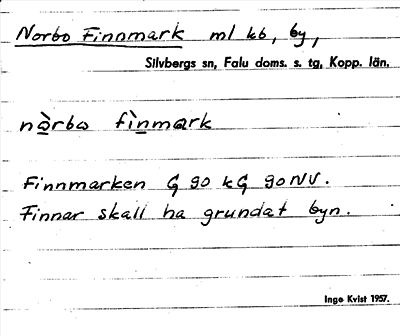 Norbo Finnmark ml kb, by,
Silvbergs sn, Falu doms. s. tg, Kopp. län.
nòrbo fìnmark
Finnmarken G 90 kG 90NV.
Finnar skall ha grundat byn.
Inge Kvist 1957.